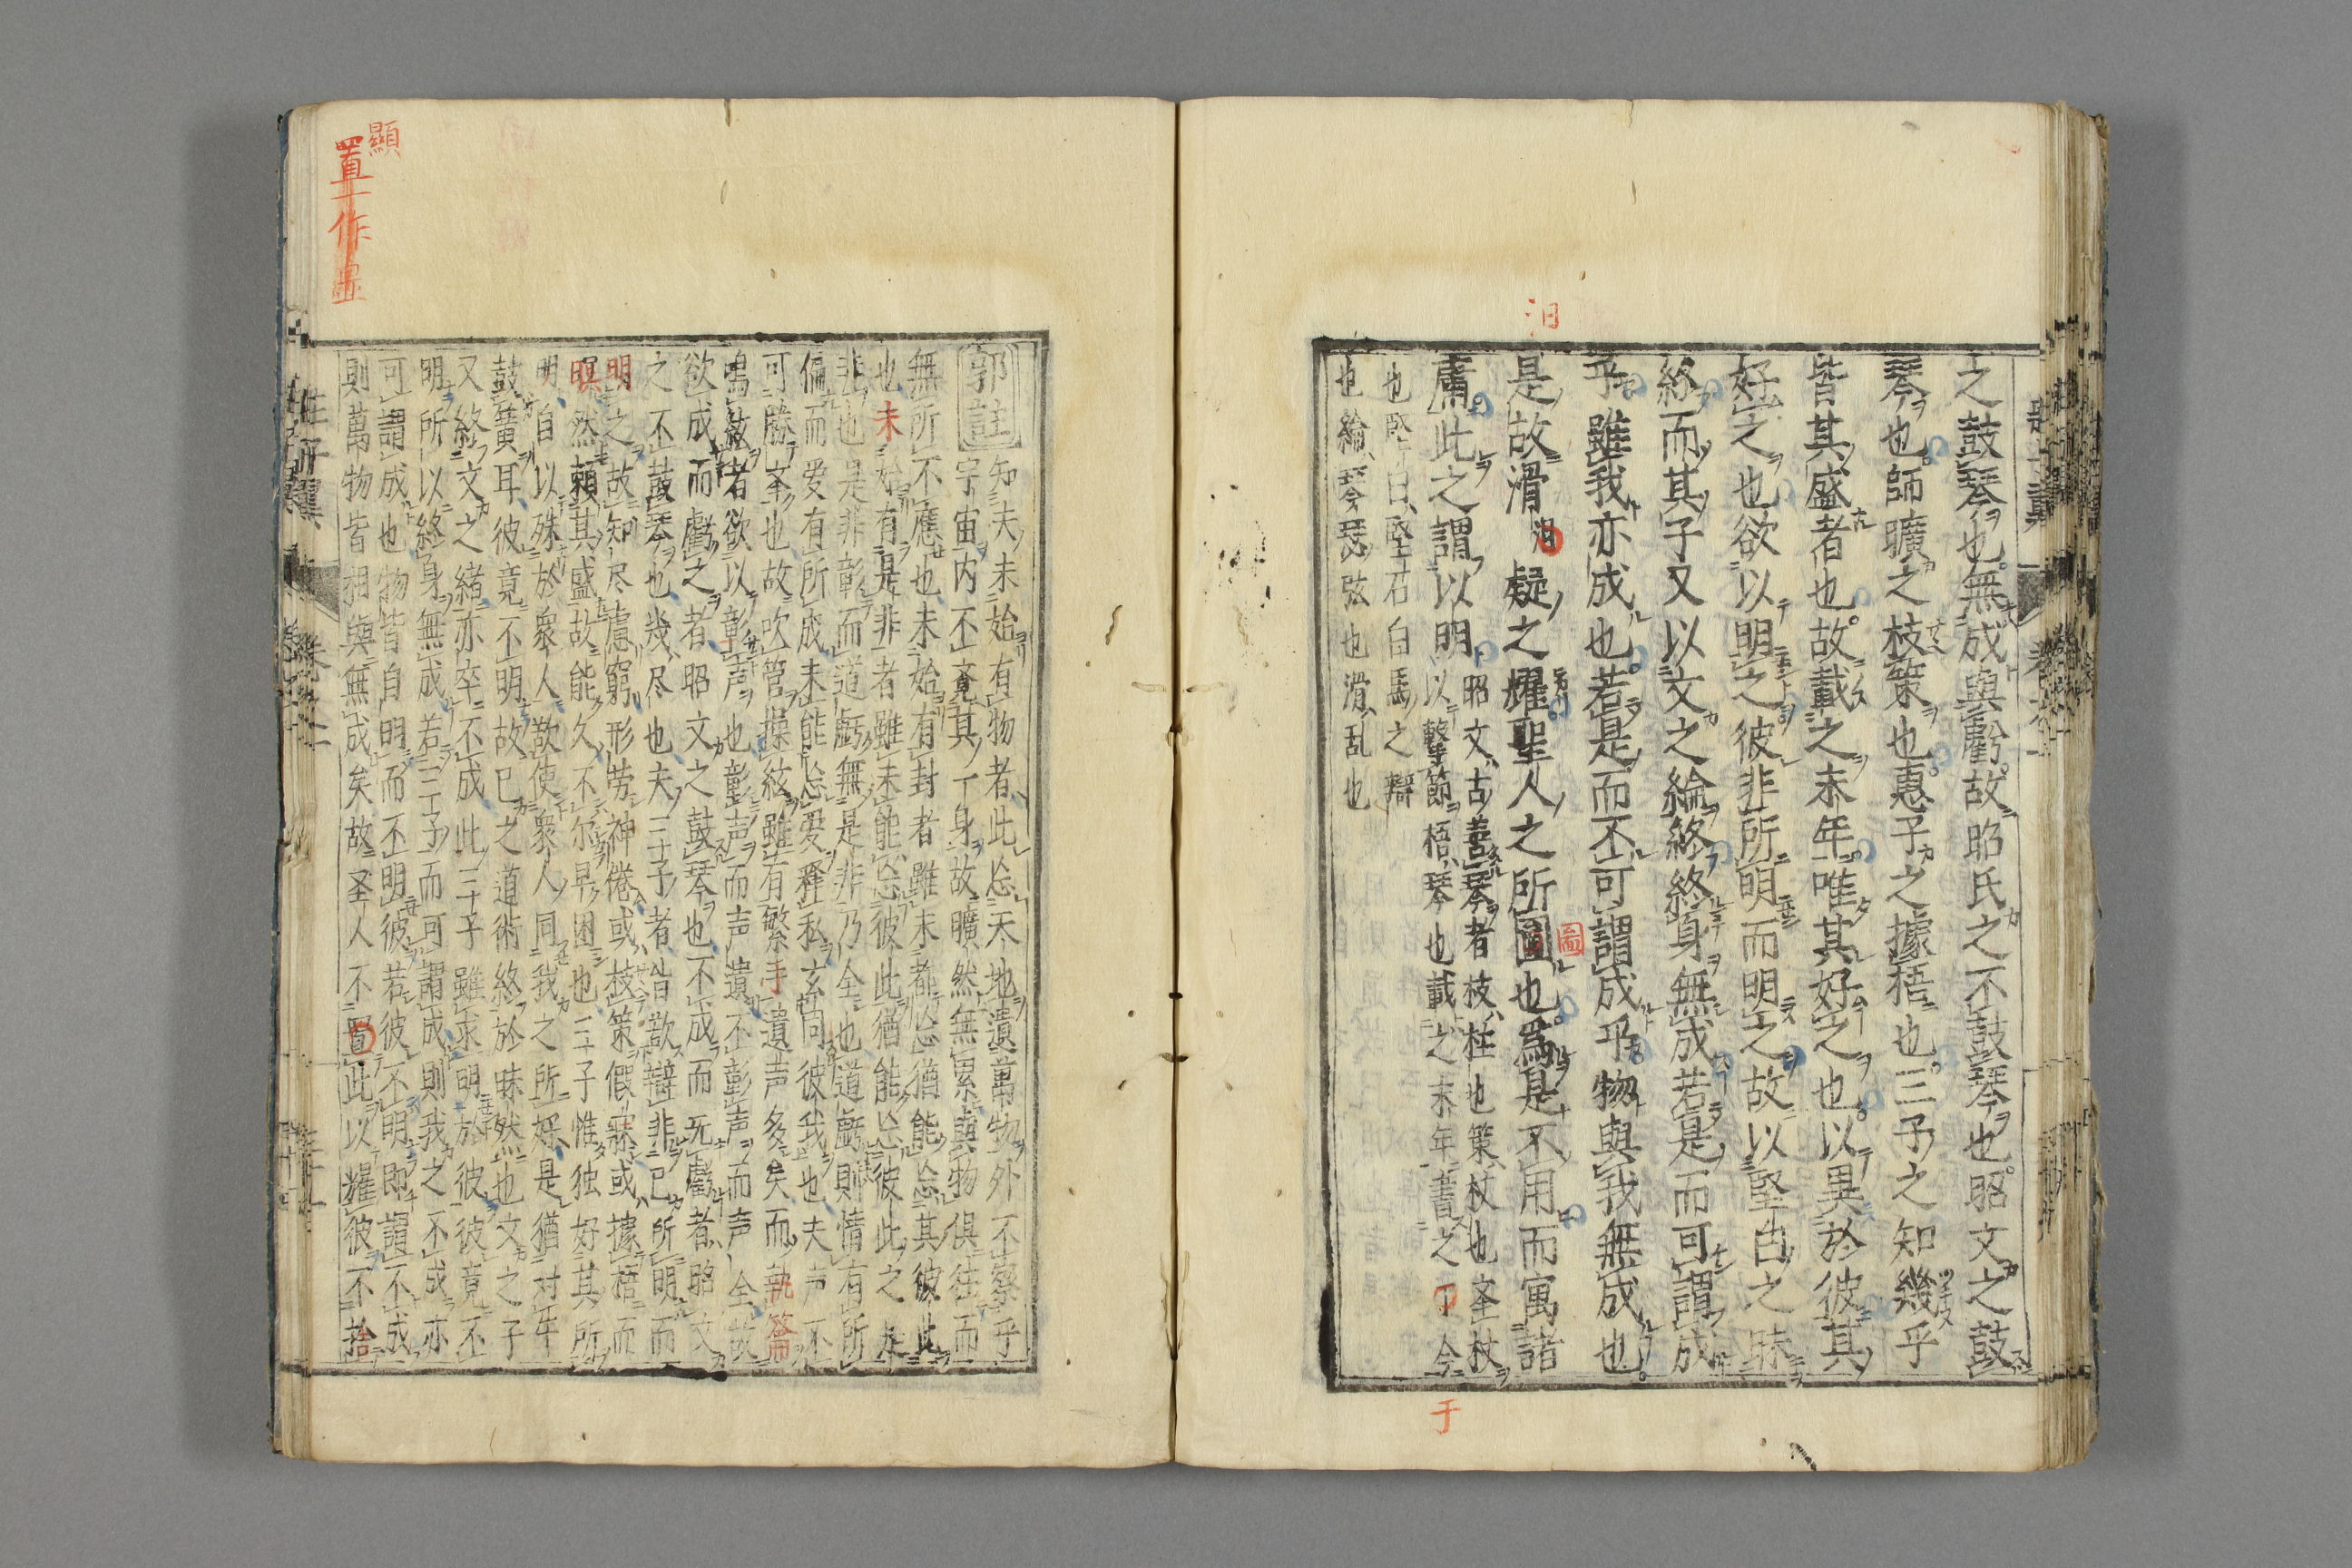 之鼓琴也無成與虧故昭氏之不鼓琴也昭文之鼓
琴也師曠之枝策也惠子之據梧也三子之知幾乎
皆其盛者也故載之末年唯其好之也以異於彼其
好之也欲以明之彼非所明而明之故以堅白之昧
終而其子又以文之綸終終身無成若是而可謂成
乎雖我亦成也若是而不可謂成乎物與我無成也
汨
是故滑汨疑之耀聖人之所圖也為是不用而寓諸
圖
庸此之謂以明昭文古善琴者枝柱也策杖也柱杖
以擊節梧琴也載之末年書之丁今
于
也堅白堅石白馬之辯
也綸琴瑟弦也滑乱也
郭註
知夫未始有物者此忘天地遺萬物外不察乎
宇宙内不覚其一身故曠然無累與物俱往而
無所不應也未始有封者雖未都忘猶能忘其彼此
也未始有是非者雖未能忘彼此猶能忘彼此之是
非也是非彰而道虧無是非乃全也道虧則情有所
偏而爱有所成未能忘爱釋私玄同彼我也夫声不
可勝挙也故吹管操絃雖有繁手遺声多矣而執籥
鳴絃者欲以彰声也彰声而声遺不彰声而声全故
欲成而虧之者昭文之鼓琴也不成而无虧者昭文
之不鼓琴也幾尽也夫三子者皆欲辯非己所明而
明之故知尽慮窮形劳神倦或枝策假寐或據梧而
瞑然頼其盛故能久不尔早困也三子惟独好其所
明自以殊於衆人欲使衆人同我之所好是猶対牛
鼓簧耳彼竟不明故己之道術終於昧然也文之子
又終文之緒亦卒不成此三子雖求明於彼彼竟不
明所以終身無成若三子而可謂成則我之不成亦
可謂成也物皆自明而不明彼若彼不明即謂不成
則萬物皆相與無成矣故圣人不置此以耀彼不捨
顯
置一作显